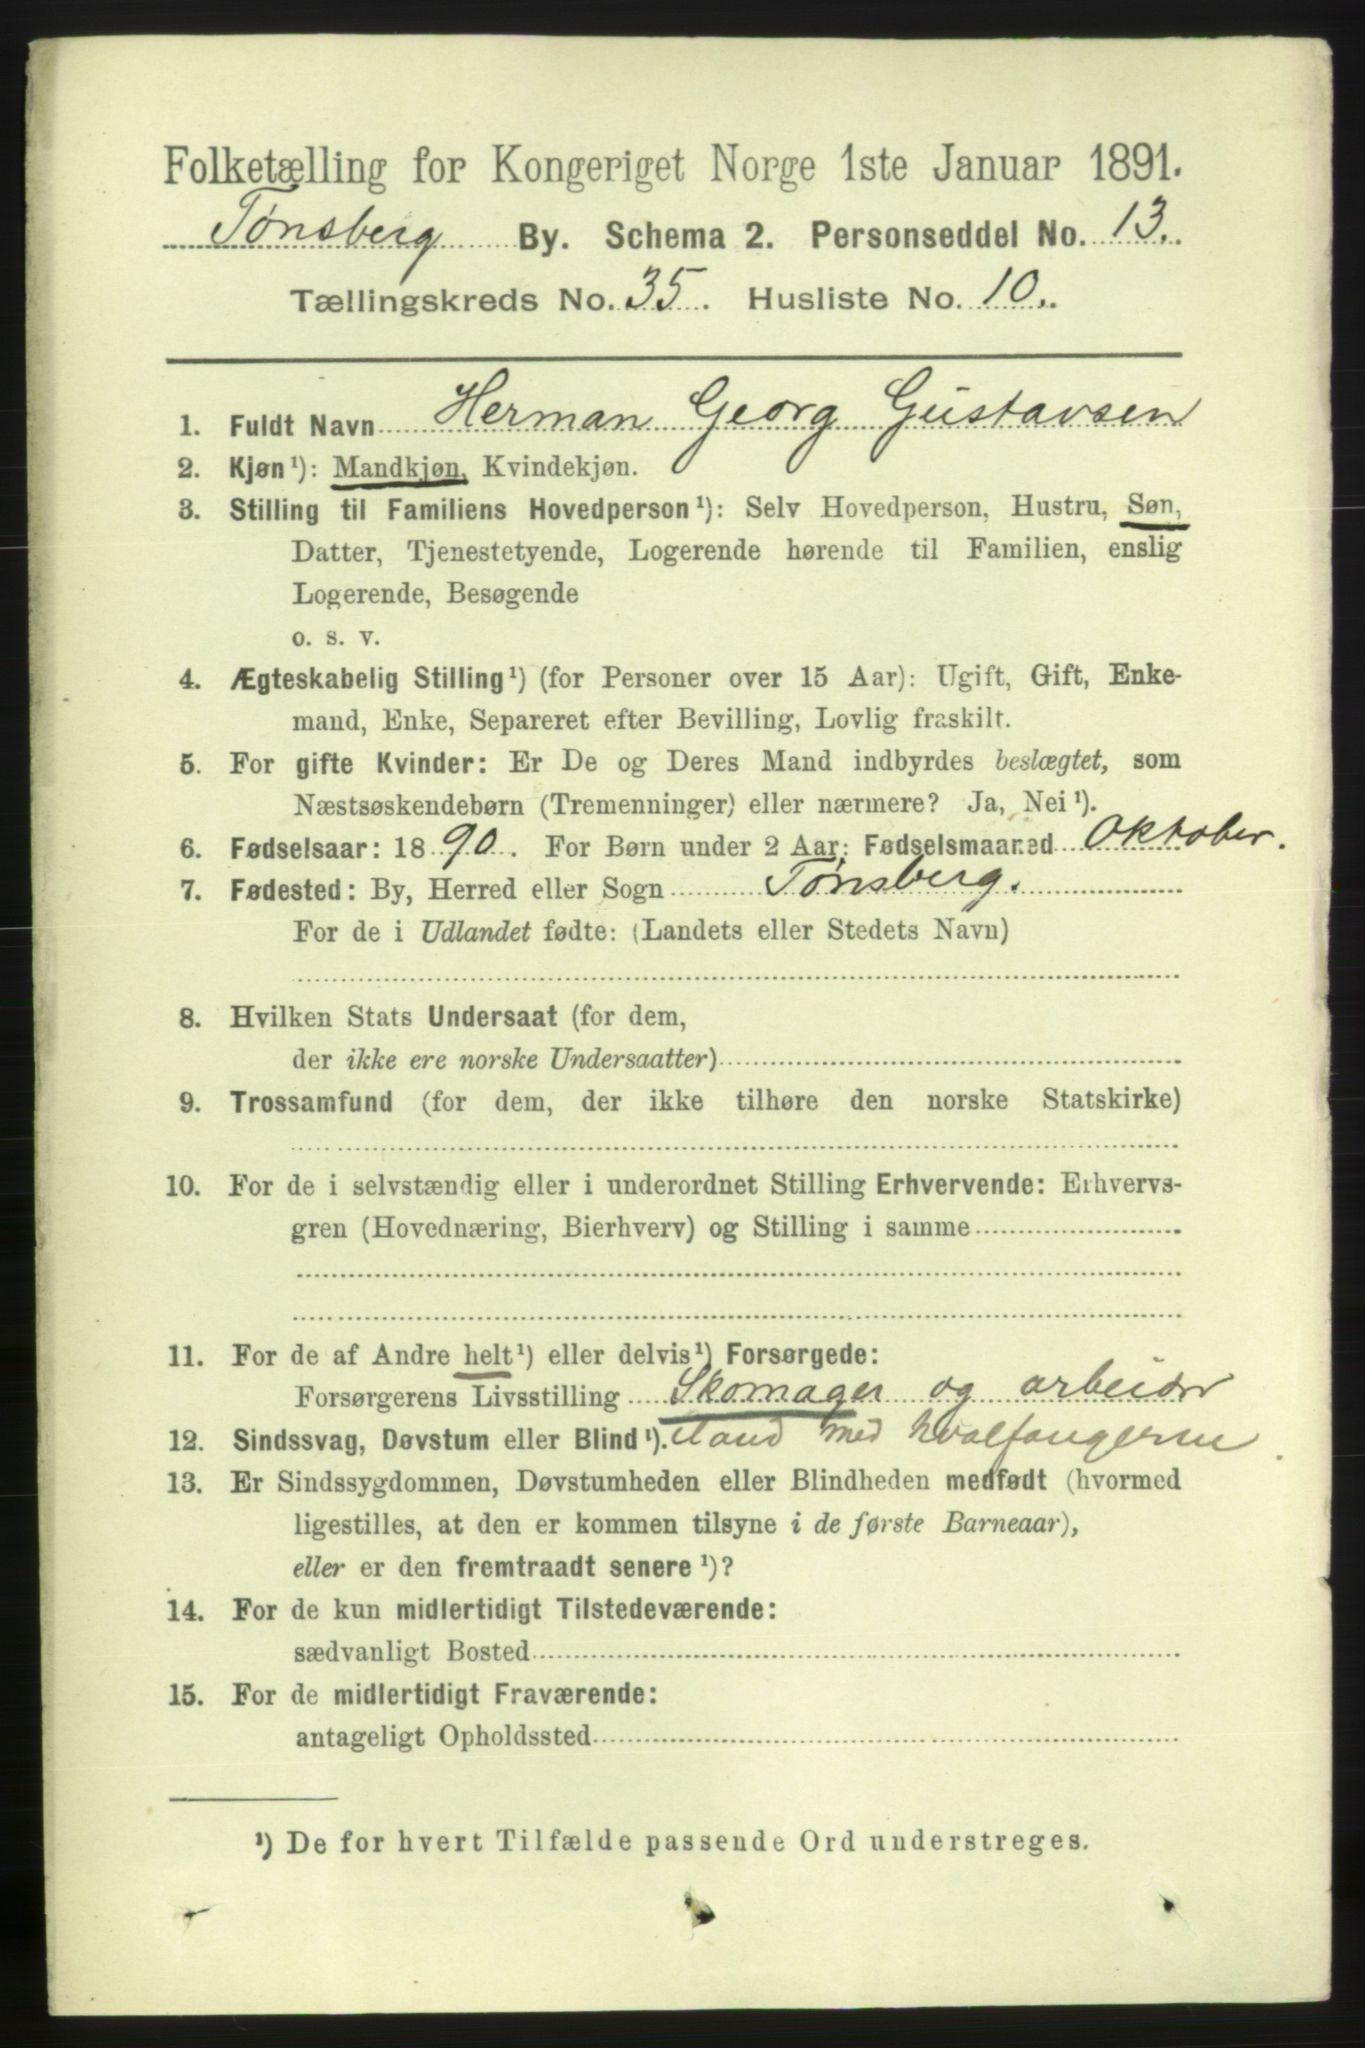 Folketælling for Kongeriget Norge 1ste Januar 1891.
Tønsberg By. Schema 2. Personseddel No. 13.
Tællingskreds No. 35. Husliste No. 10.
1. Fuldt Navn Herman Georg Gustavsen
2. Kjøn¹): Mandkjøn, Kvindekjøn.
3. Stilling til Familiens Hovedperson¹): Selv Hovedperson, Hustru, Søn,
Datter, Tjenestetyende, Logerende hørende til Familien, enslig
Logerende, Besøgende
o. s. v.
4. Ægteskabelig Stilling¹) (for Personer over 15 Aar): Ugift, Gift, Enke-
mand, Enke, Separeret efter Bevilling, Lovlig fraskilt.
5. For gifte Kvinder: Er De og Deres Mand indbyrdes beslægtet, som
Næstsøskendebørn (Tremenninger) eller nærmere? Ja, Nei¹).
6. Fødselsaar: 1890. For Børn under 2 Aar: Fødselsmaaned Oktober.
7. Fødested: By, Herred eller Sogn Tønsberg.
For de i Udlandet fødte: (Landets eller Stedets Navn)
8. Hvilken Stats Undersaat (for dem,
der ikke ere norske Undersaatter)
9. Trossamfund (for dem, der ikke tilhøre den norske Statskirke)
10. For de i selvstændig eller i underordnet Stilling Erhvervende: Erhvervs-
gren (Hovednæring, Bierhverv) og Stilling i samme
11. For de af Andre helt¹) eller delvis¹) Forsørgede:
Forsørgerens Livsstilling Skomager og arbeider
12. Sindssvag, Døvstum eller Blind¹). med hvalfangerne.
13. Er Sindssygdommen, Døvstumheden eller Blindheden medfødt (hvormed
ligestilles, at den er kommen tilsyne i de første Barneaar),
eller er den fremtraadt senere¹)?
14. For de kun midlertidigt Tilstedeværende:
sædvanligt Bosted
15. For de midlertidigt Fraværende:
antageligt Opholdssted
¹) De for hvert Tilfælde passende Ord understreges.